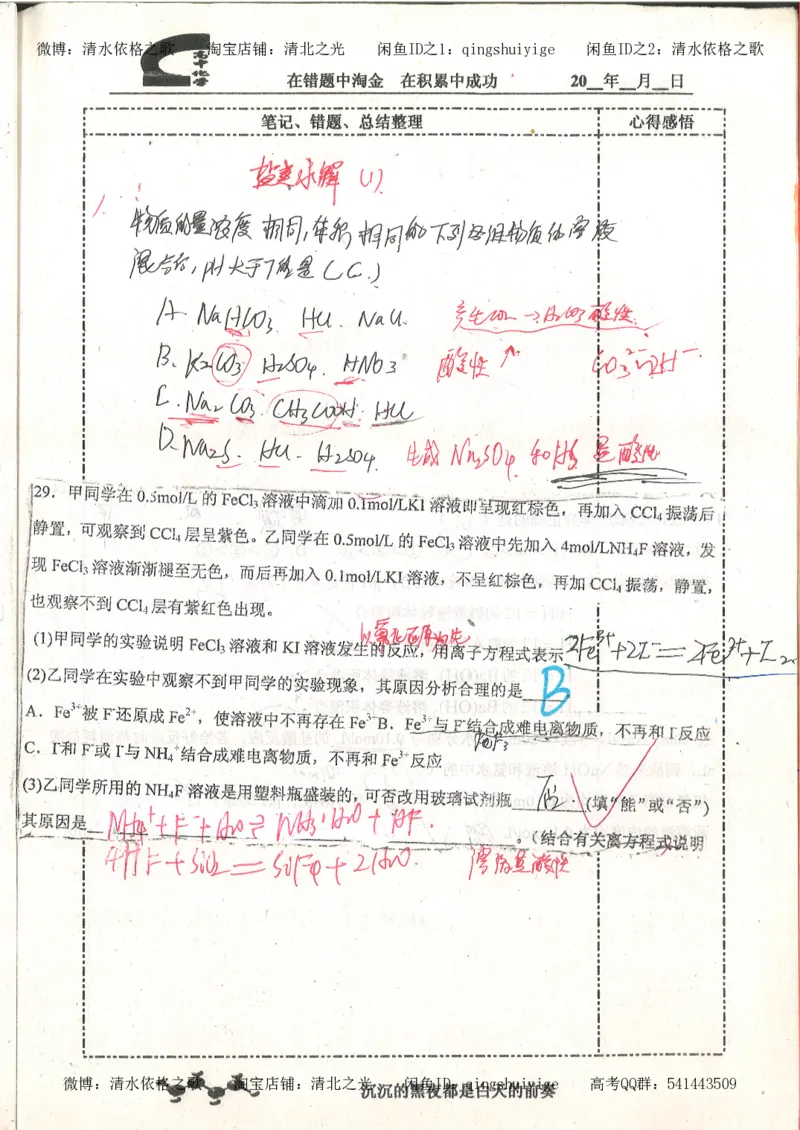 微博：清水依格之歌 淘宝店铺：清北之光 闲鱼ID之1：qingshuiyige 闲鱼ID之2：清水依格之歌
在错题中淘金 在积累中成功 20__年__月__日
笔记、错题、总结整理 心得感悟
盐类水解 (1)
1.
物质的量浓度相同，体积相同的下列各组物质的溶液
混合后，pH大于7的是（C.）
A. NaHCO3. HCl. NaCl. 产生CO2→H2CO3酸性.
B. K2CO3 H2SO4. HNO3 酸性↑ CO3²⁻~2H⁻.
C. Na2CO3. CH3COOH. HCl
D. Na2S. HCl. H2SO4. 生成Na2SO4和H2S 是酸性
29．甲同学在0.5mol/L的FeCl₃溶液中滴加0.1mol/LKI溶液即呈现红棕色，再加入CCl₄振荡后
静置，可观察到CCl₄层呈紫色。乙同学在0.5mol/L的FeCl₃溶液中先加入4mol/LNH₄F溶液，发
现FeCl₃溶液渐渐褪至无色，而后再加入0.1mol/LKI溶液，不呈红棕色，再加CCl₄振荡，静置，
也观察不到CCl₄层有紫红色出现。
以氧化还原为先
(1)甲同学的实验说明FeCl₃溶液和KI溶液发生的反应，用离子方程式表示 2Fe³⁺+2I⁻=2Fe²⁺+I₂
(2)乙同学在实验中观察不到甲同学的实验现象，其原因分析合理的是 B
A．Fe³⁺被F⁻还原成Fe²⁺，使溶液中不再存在Fe³⁺ B．Fe³⁺与F⁻结合成难电离物质，不再和I⁻反应
FeF3
C．I⁻和F⁻或I⁻与NH₄⁺结合成难电离物质，不再和Fe³⁺反应
(3)乙同学所用的NH₄F溶液是用塑料瓶盛装的，可否改用玻璃试剂瓶 否.（填“能”或“否”）
其原因是 NH4⁺+F⁻+H2O⇌NH3·H2O+HF. 。（结合有关离方程式说明
4HF+SiO2=SiF4+2H2O.
微博：清水依格之歌 淘宝店铺：清北之光 闲鱼ID：qingshuiyige 高考QQ群：541443509
沉沉的黑夜都是白天的前奏